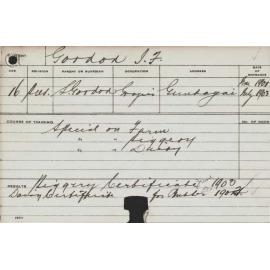 Gordon J. F.
AGE RELIGION PARENT OR GUARDIAN OCCUPATION ADDRESS DATE OF ENTRANCE
16 Pres. S Gordon Grazier Gundagai 1901
July 1903
COURSE OF TRAINING
Special on Farm
" " Piggery
" " Dairy
RESULTS Piggery Certificate 1903
Dairy Certificate for